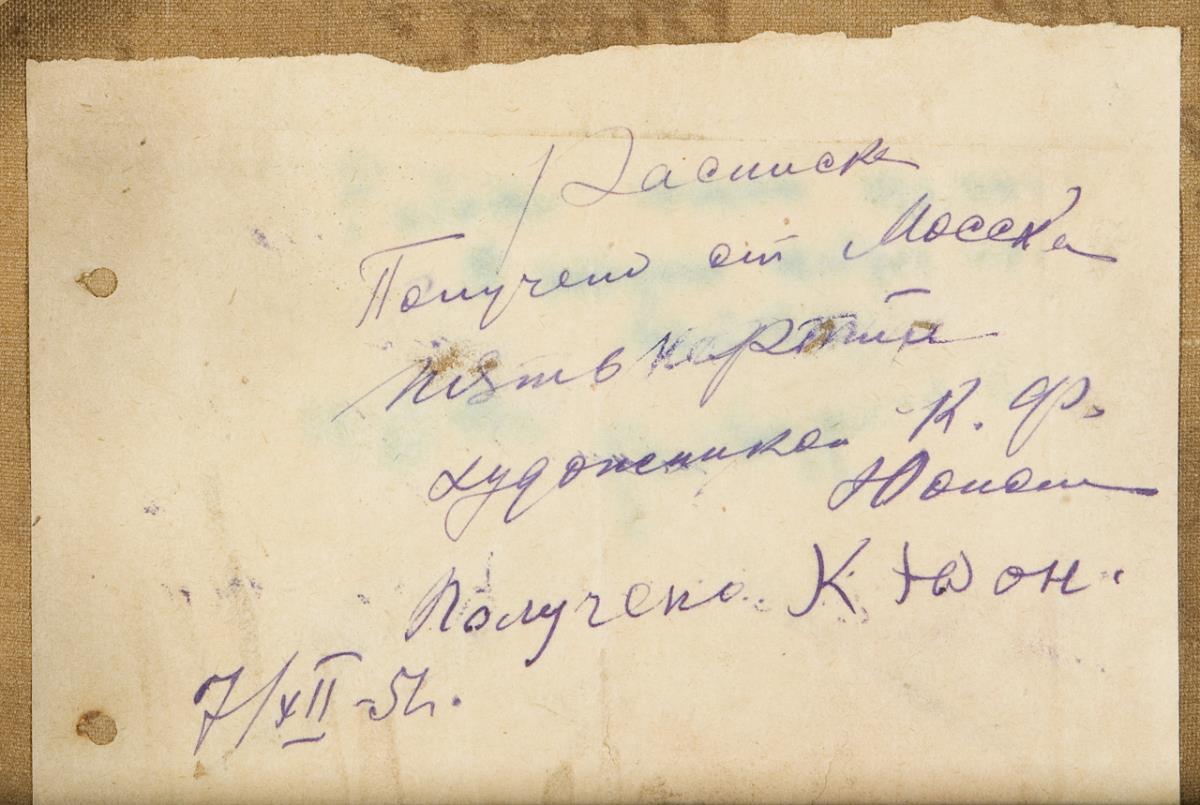 Расписка
Получено от Моссха
пять картин
художником К. Ф.
Юоном
Получено. К Юон.
7/XII-51.